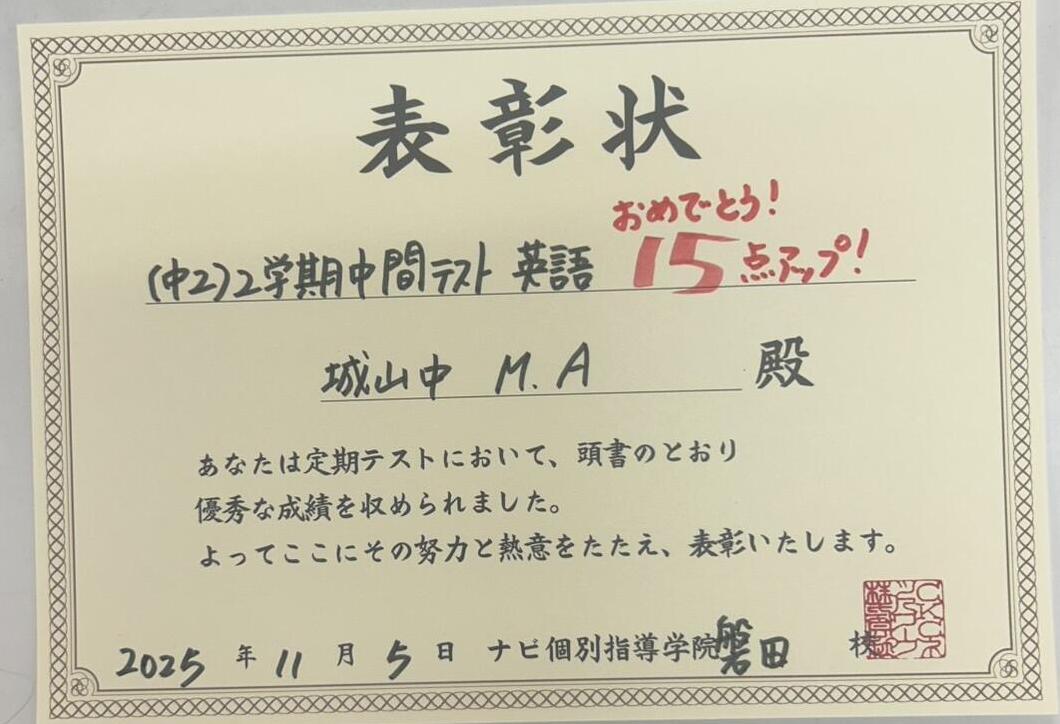 表彰状
おめでとう!
(中2)2学期中間テスト 英語 15点アップ!
城山中 M.A 殿
あなたは定期テストにおいて、頭書のとおり
優秀な成績を収められました。
よってここにその努力と熱意をたたえ、表彰いたします。
2025年11月5日 ナビ個別指導学院磐田校